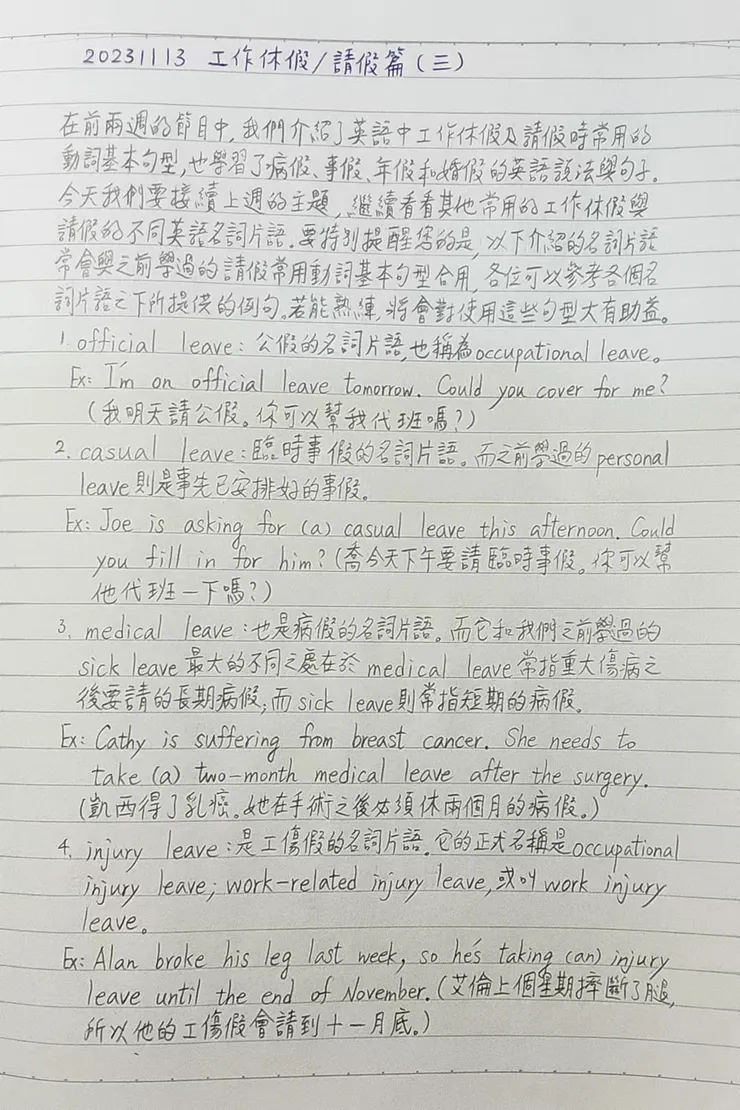 20231113 工作休假/請假篇(三)
在前兩週的節目中,我們介紹了英語中工作休假及請假時常用的
動詞基本句型,也學習了病假、事假、年假和婚假的英語說法與句子。
今天我們要接續上週的主題,繼續看看其他常用的工作休假與
請假的不同英語名詞片語。要特別提醒您的是,以下介紹的名詞片語
常會與之前學過的請假常用動詞基本句型合用,各位可以參考各個名
詞片語之下所提供的例句。若能熟練,將會對使用這些句型大有助益。
1. official leave:公假的名詞片語,也稱為occupational leave。
Ex: I'm on official leave tomorrow. Could you cover for me?
(我明天請公假。你可以幫我代班嗎?)
2. casual leave:臨時事假的名詞片語。而之前學過的personal
leave則是事先已安排好的事假。
Ex: Joe is asking for (a) casual leave this afternoon. Could
you fill in for him?(喬今天下午要請臨時事假。你可以幫
他代班一下嗎?)
3. medical leave:也是病假的名詞片語。而它和我們之前學過的
sick leave最大的不同之處在於medical leave常指重大傷病之
後要請的長期病假;而sick leave則常指短期的病假。
Ex: Cathy is suffering from breast cancer. She needs to
take (a) two-month medical leave after the surgery.
(凱西得了乳癌。她在手術之後必須休兩個月的病假。)
4. injury leave:是工傷假的名詞片語。它的正式名稱是occupational
injury leave; work-related injury leave,或叫work injury
leave。
Ex: Alan broke his leg last week, so he's taking (an) injury
leave until the end of November.(艾倫上個星期摔斷了腿,
所以他的工傷假會請到十一月底。)